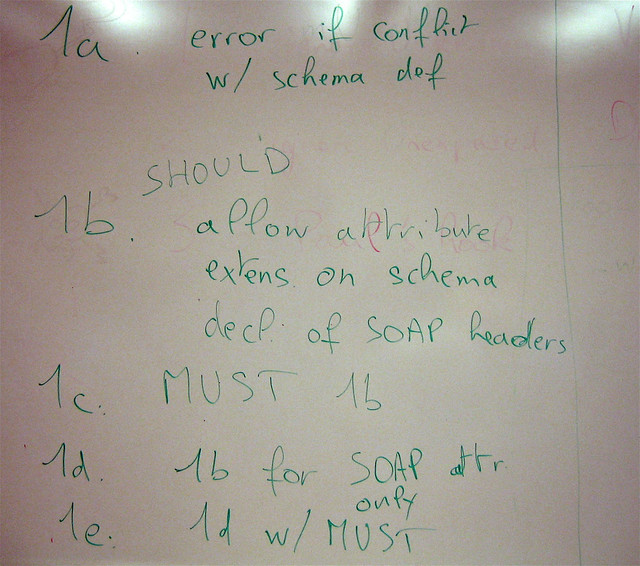 1a. error if conflict
w/ schema def
SHOULD
1b. allow attribute
extens. on schema
decl. of SOAP headers
1c. MUST 1b
1d. 1b for SOAP attr.
only
1e. 1d w/ MUST